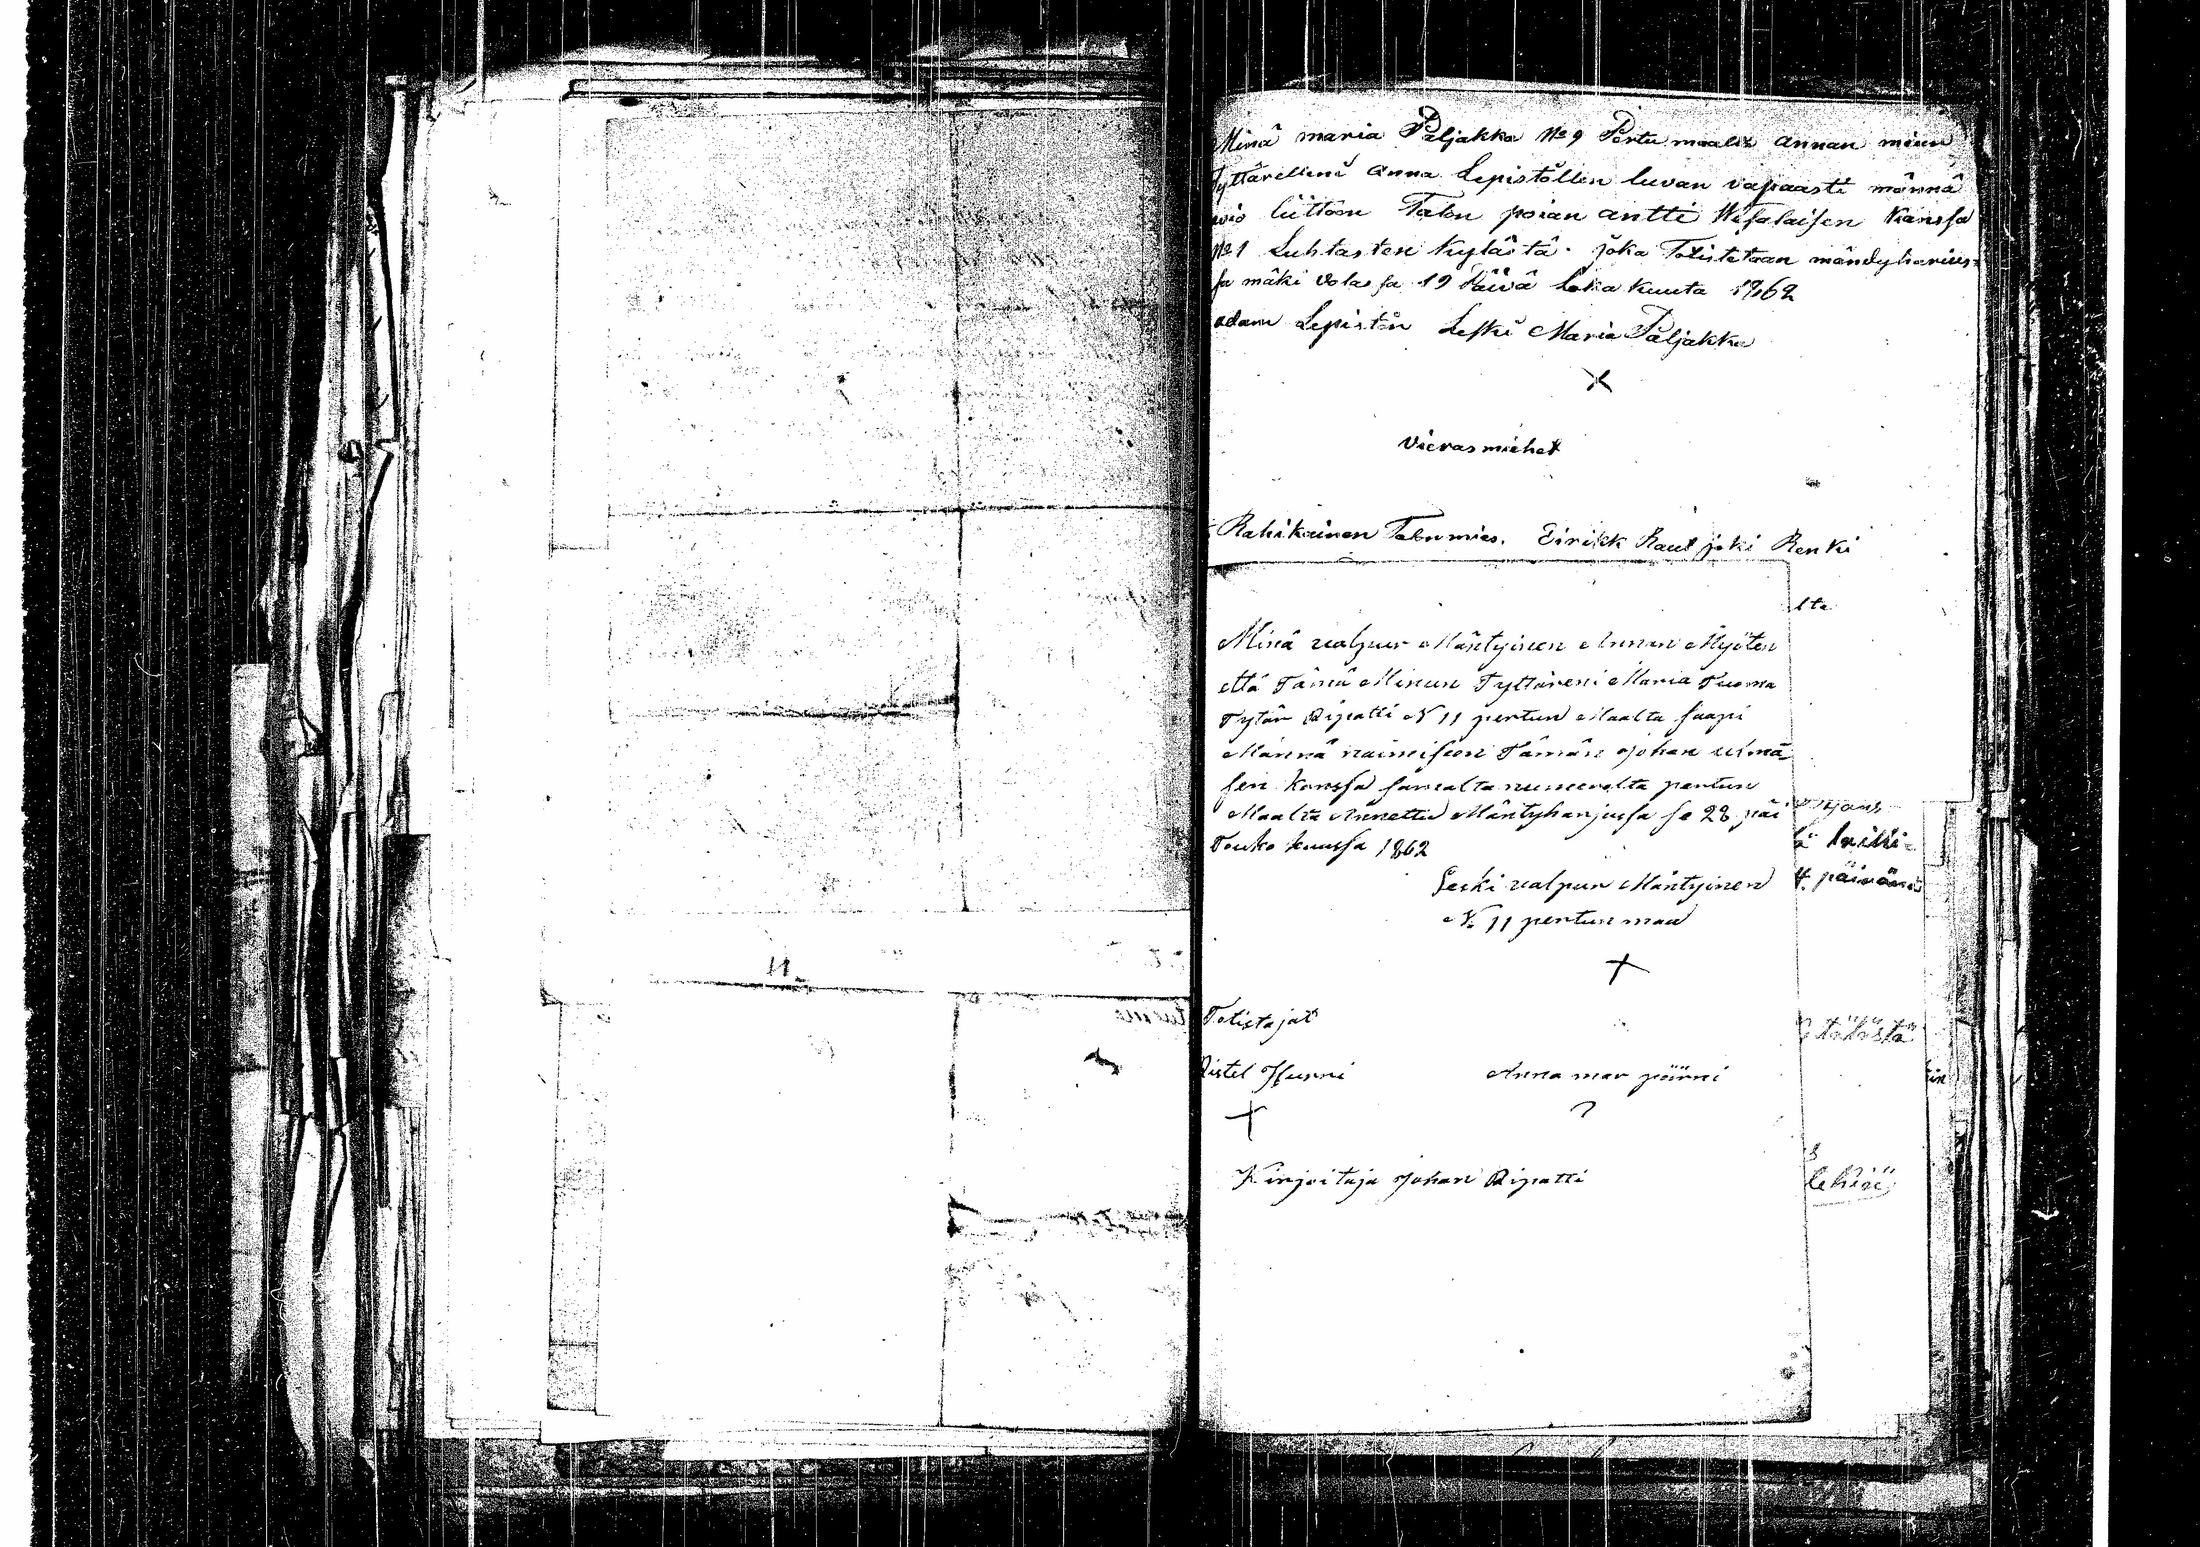 Minä maria Paljakka No 9 Pertu maalta annan minun
Tyttärelleni anna Lepistöllen luvan vapaasti männä
avio liittoon Talon poian antti Wesalaisen kanssa
No 1 Luhtasten kylästä. joka Toistetaan mändyharius-
sa mäki volassa 19 Päivä Loka kuuta 1862
adam Lepistön Leski Maria Paljakka
X
Vieras miehet
Rahikainen Talon mies. Eirikk Raut joki Renki
lta
Minä valpur Mäntyinen Annan Myöten
että Tämä Minun Tyttäreni Maria Tuoma
Tytär Ripatti N 11 pertun Maalta saapi
Männä naimiseen Tämän Johan
sen kanssa samalta numerolta pertun
Maalta Annettu Mäntyharjussa se 28 päi
Touko kuussa 1862
Leski valpuri Mäntyinen
N. 11 pertun maa
+
Totistajat
Ristel Hurri Anna mar pöörni
+
Kirjoitaja Johan Ripatti
4. päivänä